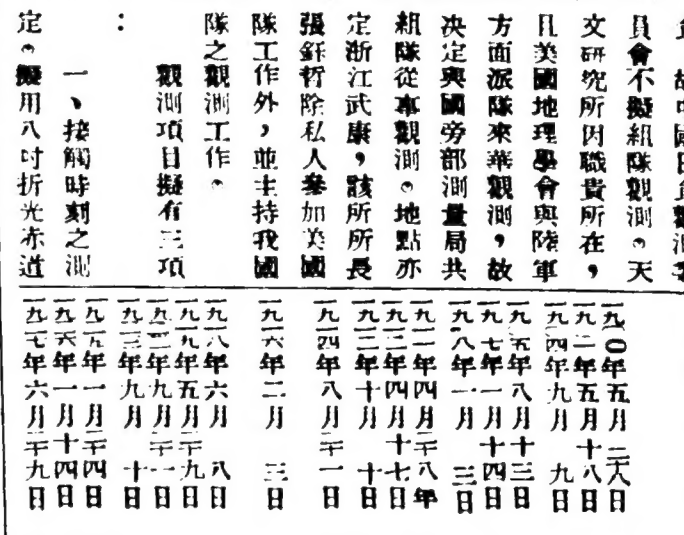 中國日食觀測
員會不擬組隊觀測。天
文研究所因職責所在，
且美國地理學會與陸軍
方面派隊來華觀測，故
决定與國旁部測量局共
組隊從事觀測。地點亦
定浙江武康，該所所長
張鈺哲除私人參加美國
隊工作外，並主持我國
隊之觀測工作。
觀測項目擬有三項
：
一、接觸時刻之測
定。擬用八吋折光赤道
一九〇年五月二八日
一九一年五月十八日
一九四年九月九日
一九五年八月十三日
一九七年一月十四日
一九八年一月三日
一九一一年四月二八年
一九一二年四月十七日
一九一二年十月十日
一九一四年八月二十一日
一九一六年二月三日
一九一八年六月八日
一九一九年五月二十九日
一九二二年九月二十一日
一九二三年九月十日
一九二五年一月二十四日
一九二六年一月十四日
一九二七年六月二十九日